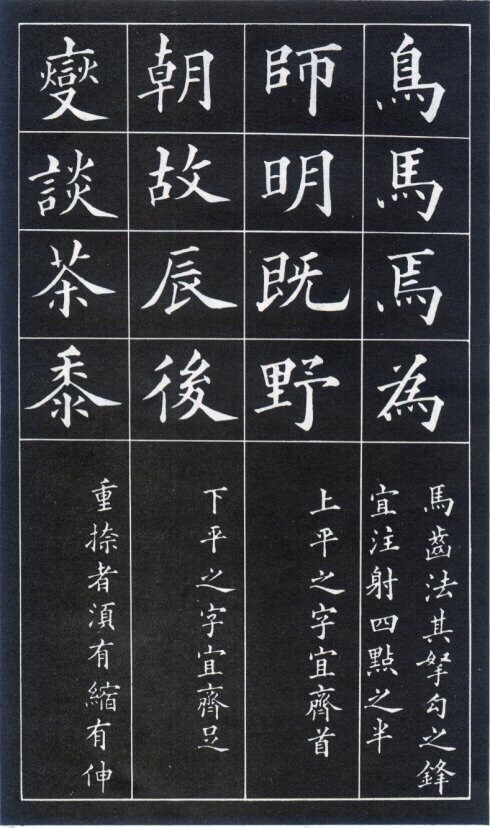 鳥馬焉為
馬齒法其拏勾之鋒
宜注射四點之半
師明既野
上平之字宜齊首
朝故辰後
下平之字宜齊足
燮談茶黍
重捺者湏有縮有伸